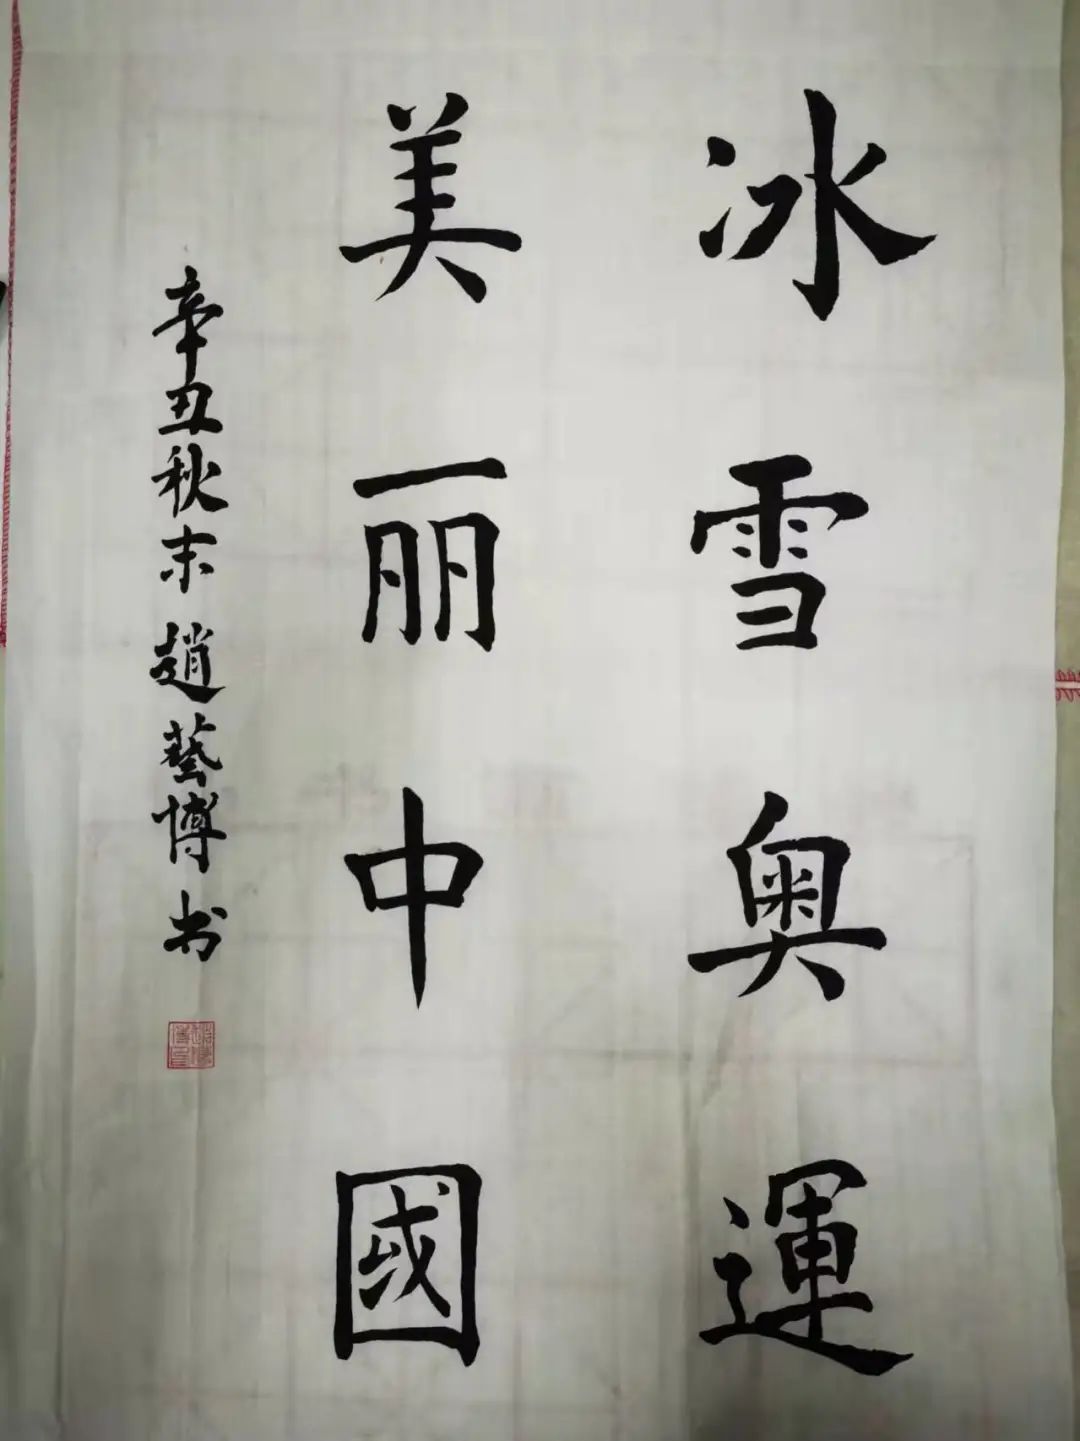 冰雪奥運
美丽中國
辛丑秋末趙藝博书